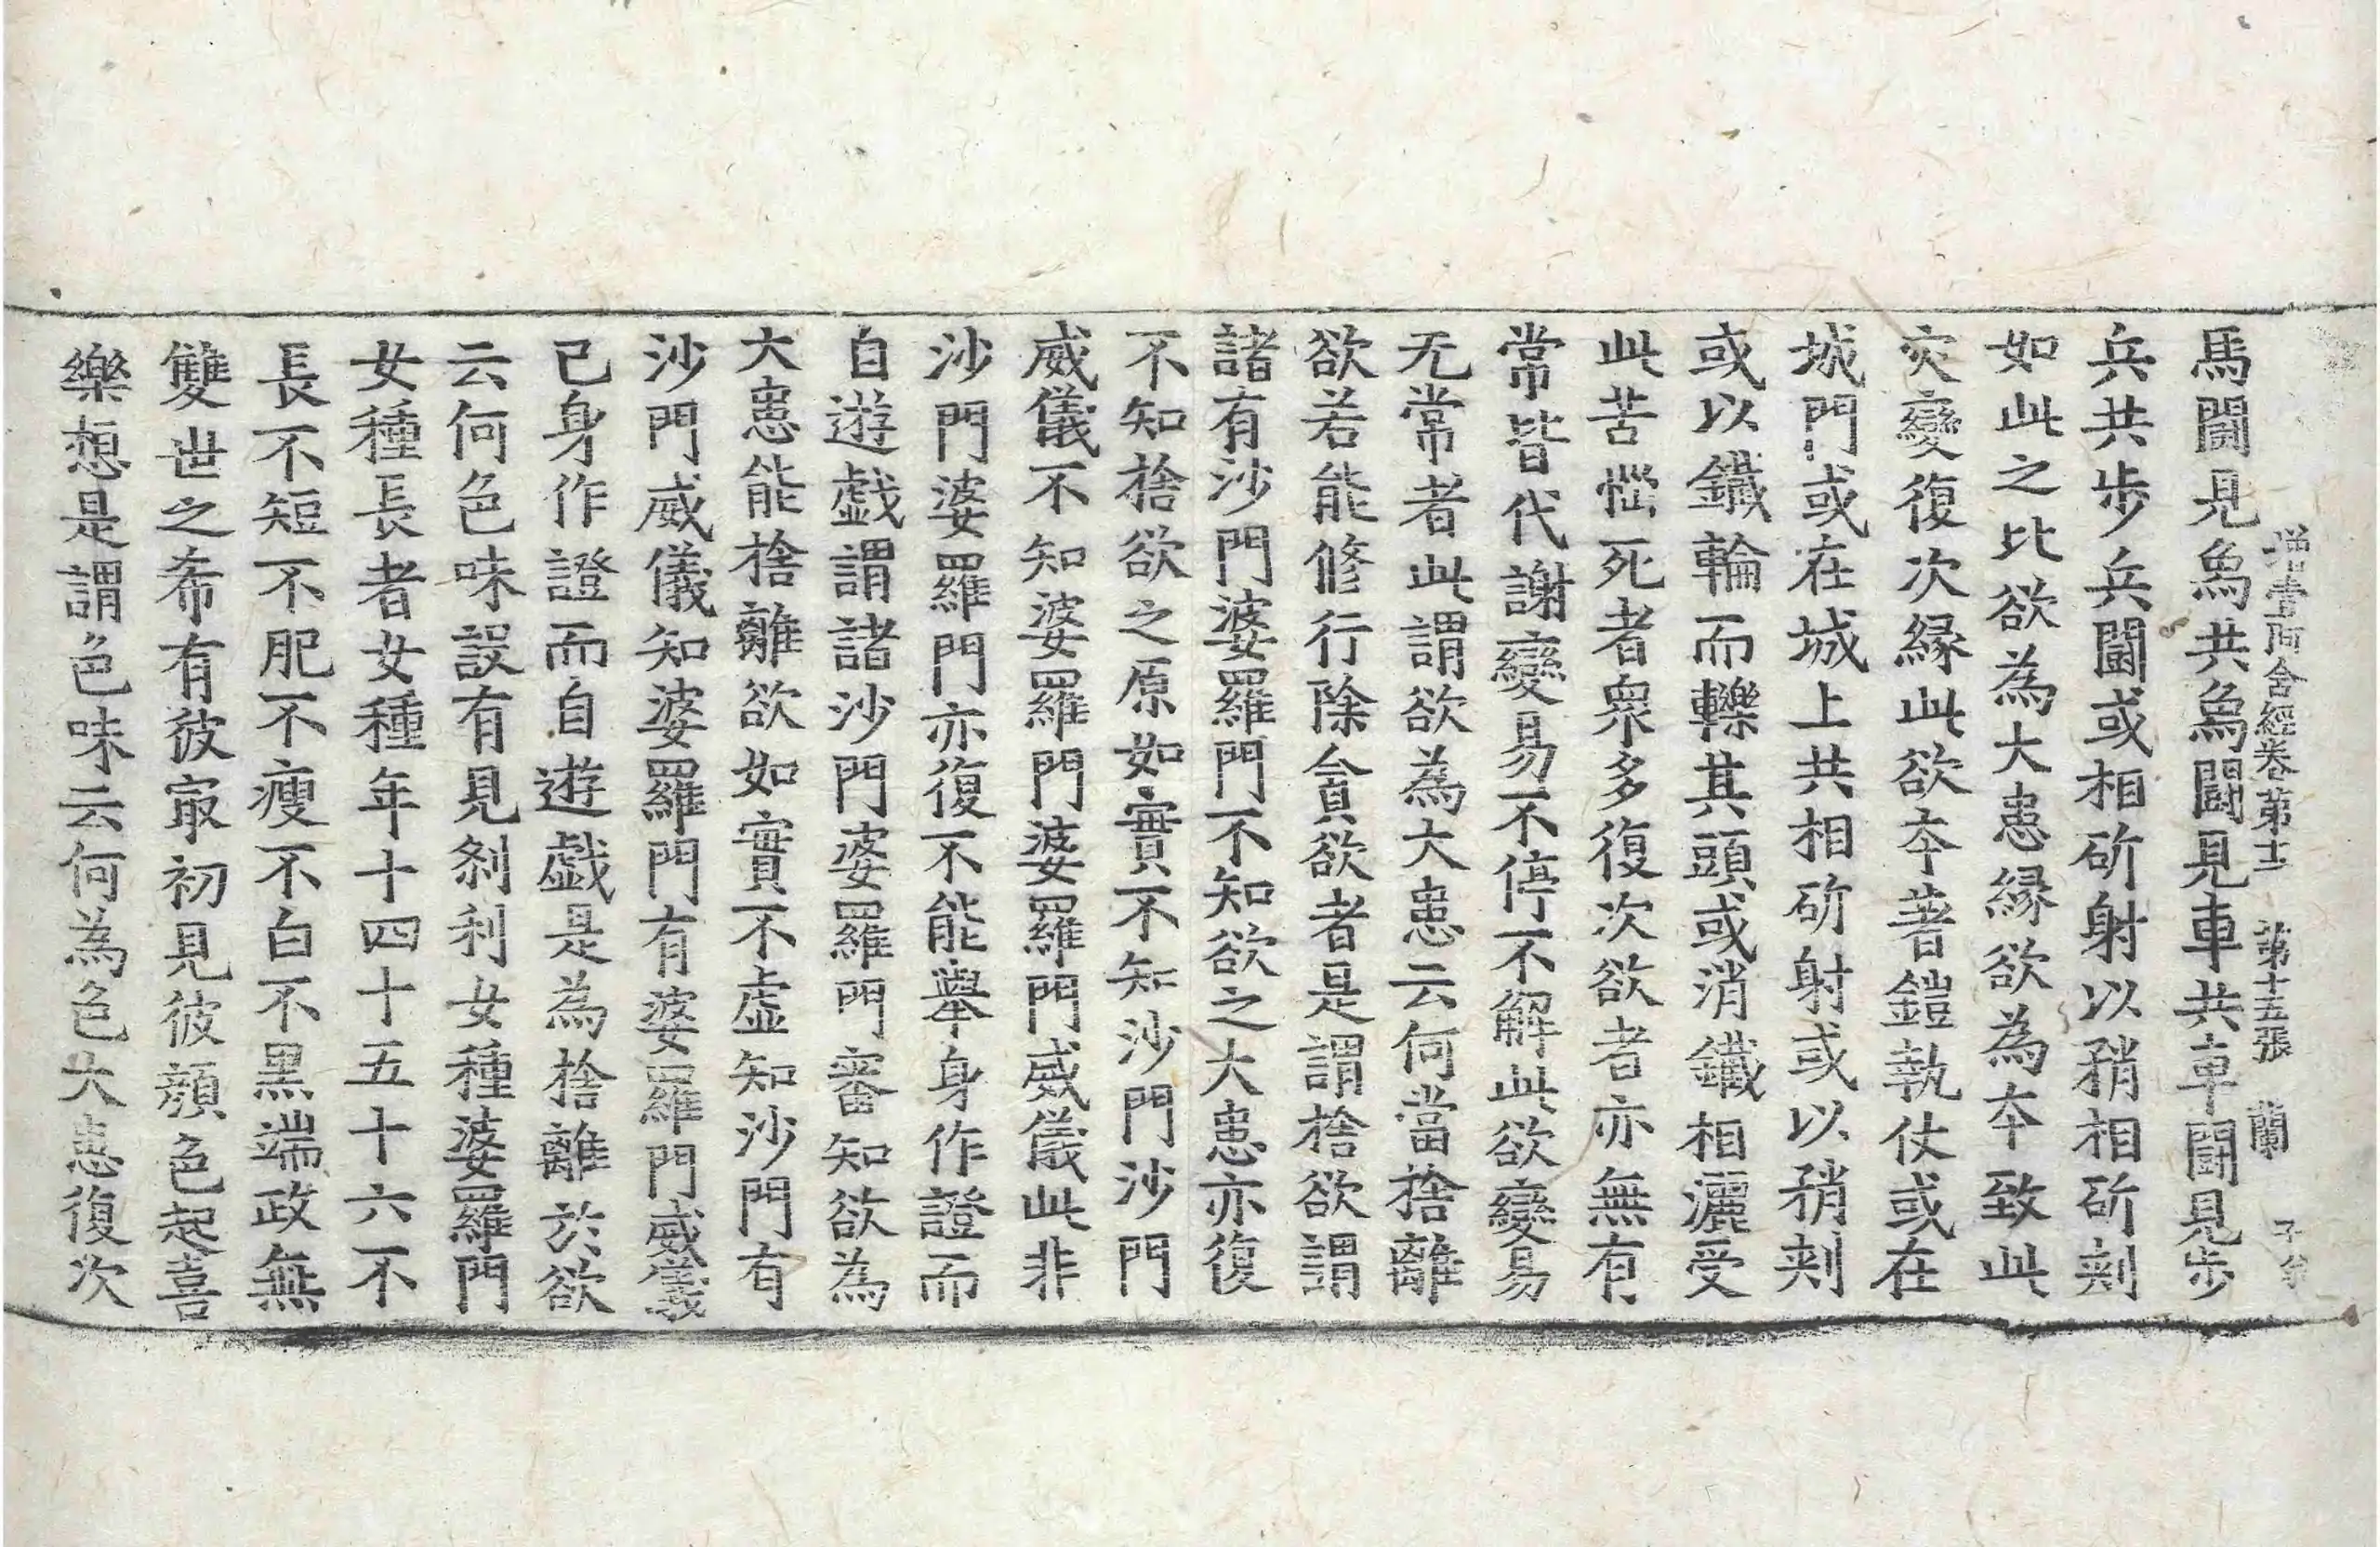 增壹阿含經卷第十二 第十五張 蘭
馬鬪見象共象鬪見車共車鬪見步
兵共步兵鬪或相斫射以矟相斫刾
如此之比欲為大患縁欲為夲致此
灾變復次縁此欲夲著鎧執仗或在
城門或在城上共相斫射或以矟刾
或以鐵輪而轢其頭或消鐵相灑受
此苦惱死者衆多復次欲者亦無有
常皆代謝變易不停不解此欲變易
无常者此謂欲為大患云何當捨離
欲若能修行除貪欲者是謂捨欲謂
諸有沙門婆羅門不知欲之大患亦復
不知捨欲之原如實不知沙門沙門
威儀不知婆羅門婆羅門威儀此非
沙門婆羅門亦復不能舉身作證而
自遊戲謂諸沙門婆羅門審知欲為
大患能捨離欲如實不虛知沙門有
沙門威儀知婆羅門有婆羅門威儀
己身作證而自遊戲是為捨離於欲
云何色味設有見剎利女種婆羅門
女種長者女種年十四十五十六不
長不短不肥不瘦不白不黑端政無
雙世之希有彼㝡初見彼顔色起喜
樂想是謂色味云何為色大患復次